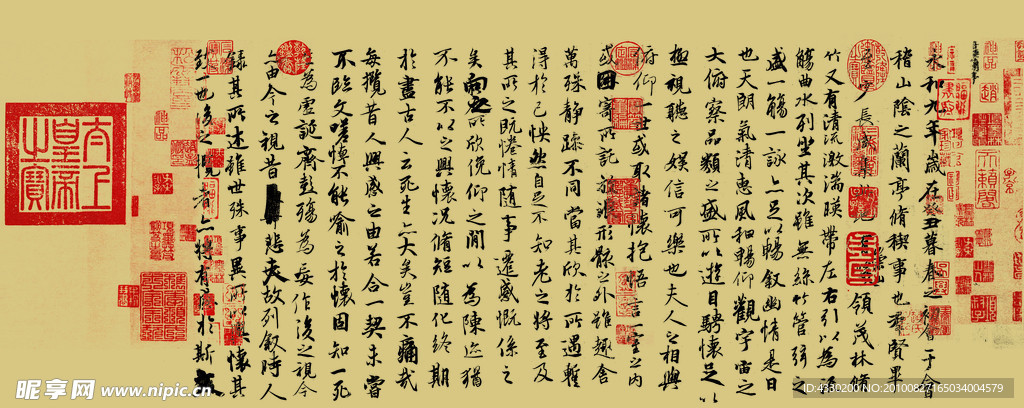 永和九年歲在癸丑暮春之初會于會
稽山陰之蘭亭脩稧事也羣賢畢
少長咸集此地領茂林脩
竹又有清流激湍暎帶左右引以為流
觴曲水列坐其次雖無絲竹管弦之
盛一觴一詠亦足以暢敘幽情是日
也天朗氣清惠風和暢仰觀宇宙之
大俯察品類之盛所以遊目騁懷足以
極視聽之娛信可樂也夫人之相與
俯仰一世或取諸懷抱悟言一室之內
或因寄所託放浪形骸之外雖趣舍
萬殊靜躁不同當其欣於所遇暫
得於己怏然自足不知老之將至及
其所之既惓情隨事遷感慨係之
矣向之所欣俛仰之閒以為陳迹猶
不能不以之興懷況脩短隨化終期
於盡古人云死生亦大矣豈不痛哉
每攬昔人興感之由若合一契未嘗
不臨文嗟悼不能喻之於懷固知一死
生為虛誕齊彭殤為妄作後之視今
亦由今之視昔悲夫故列敘時人
錄其所述雖世殊事異所以興懷其
致一也後之攬者亦將有感於斯文
太上皇帝之寶
昵享网 www.nipic.cn
ID:4330200 NO:20100827165034004579